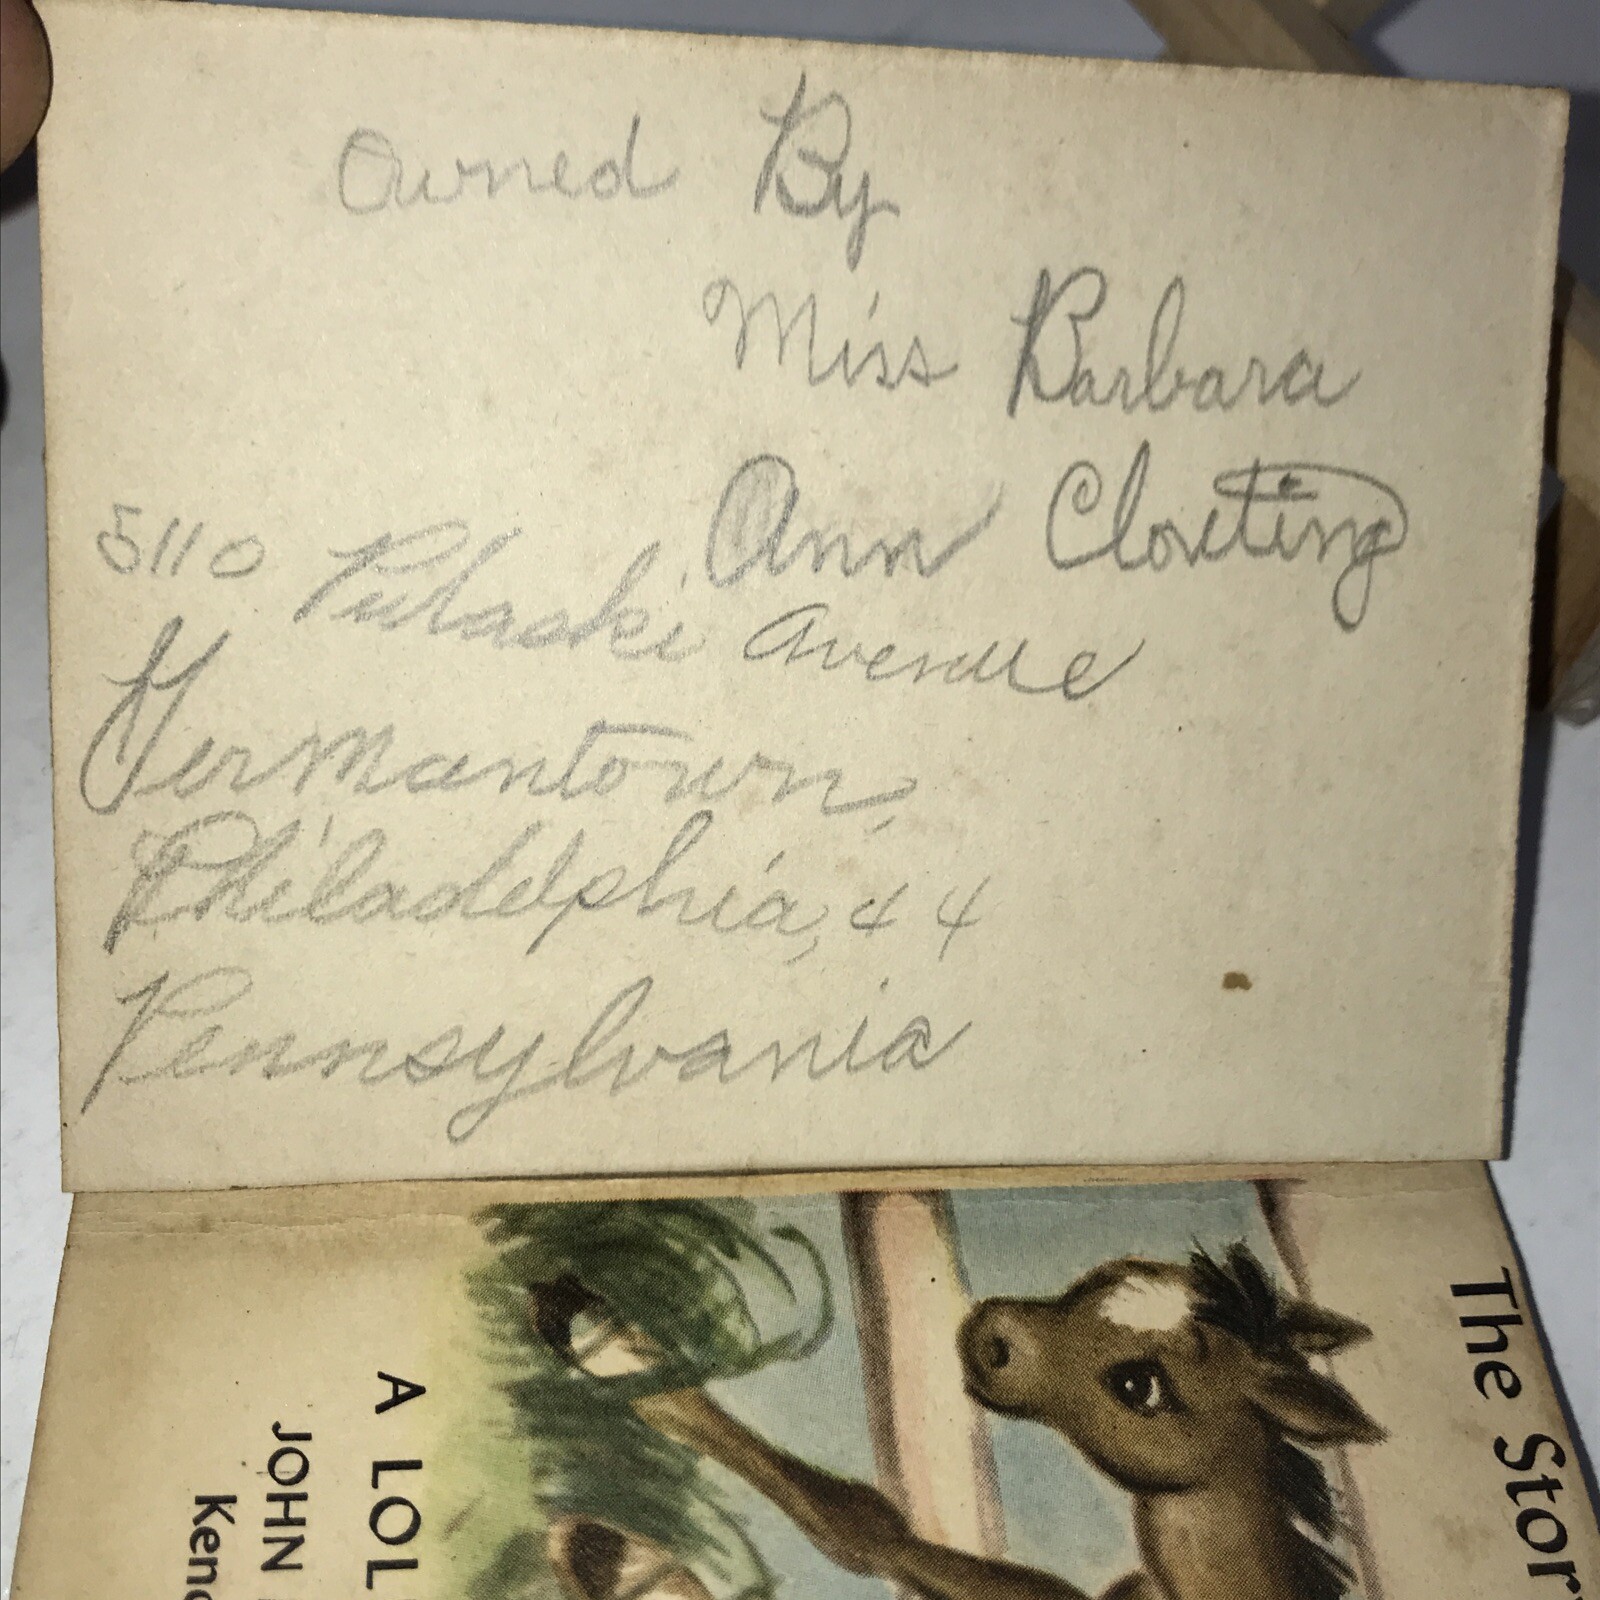 Owned By
Miss Barbara
Ann
5110 Pulaski Avenue
Germantown,
Philadelphia, 44
Pennsylvania
The Stor
A LOL
JOHN
Ken